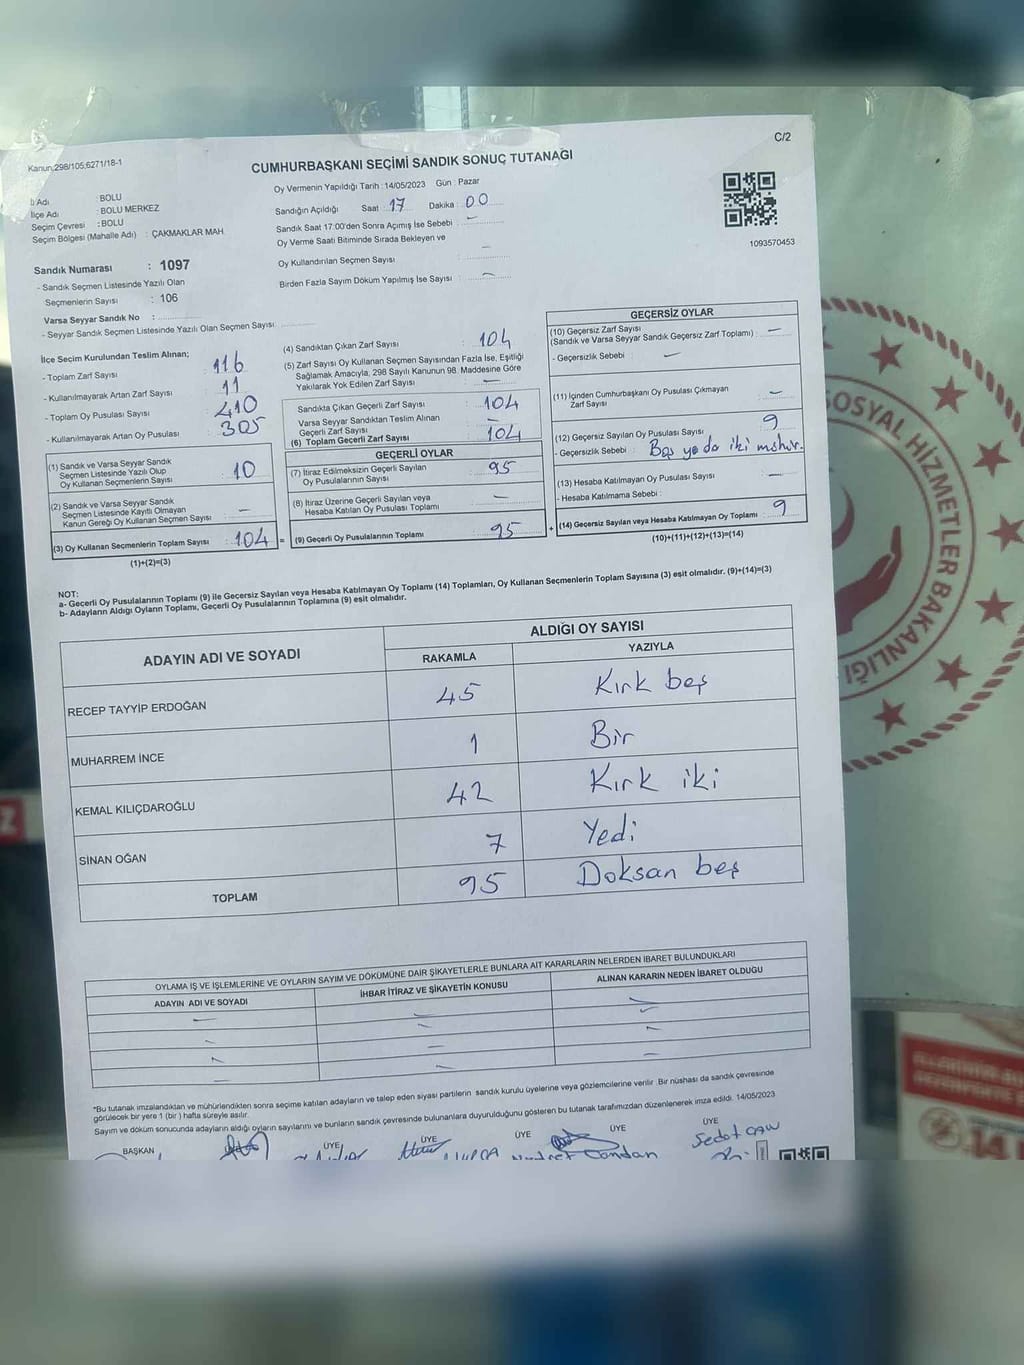 C/2
Kanun,298/105,6271/18-1
CUMHURBAŞKANI SEÇİMİ SANDIK SONUÇ TUTANAĞI
İl Adı : BOLU
İlçe Adı : BOLU MERKEZ
Seçim Çevresi : BOLU
Seçim Bölgesi (Mahalle Adı) : ÇAKMAKLAR MAH
Oy Vermenin Yapıldığı Tarih :14/05/2023 Gün : Pazar
Sandığın Açıldığı Saat : 17 Dakika : 00
Sandık Saat 17:00'den Sonra Açımış İse Sebebi : —
Oy Verme Saati Bitiminde Sırada Bekleyen ve
Oy Kullandırılan Seçmen Sayısı : —
Birden Fazla Sayım Döküm Yapılmış İse Sayısı : —
1093570453
Sandık Numarası : 1097
- Sandık Seçmen Listesinde Yazılı Olan
Seçmenlerin Sayısı : 106
Varsa Seyyar Sandık No :
- Seyyar Sandık Seçmen Listesinde Yazılı Olan Seçmen Sayısı :
İlçe Seçim Kurulundan Teslim Alınan;
- Toplam Zarf Sayısı : 116
- Kullanılmayarak Artan Zarf Sayısı : 11
- Toplam Oy Pusulası Sayısı : 410
- Kullanılmayarak Artan Oy Pusulası : 305
(1) Sandık ve Varsa Seyyar Sandık
Seçmen Listesinde Yazılı Olup
Oy Kullanan Seçmenlerin Sayısı : 10
(2) Sandık ve Varsa Seyyar Sandık
Seçmen Listesinde Kayıtlı Olmayan
Kanun Gereği Oy Kullanan Seçmen Sayısı : —
(3) Oy Kullanan Seçmenlerin Toplam Sayısı : 104 =
(1)+(2)=(3)
(4) Sandıktan Çıkan Zarf Sayısı : 104
(5) Zarf Sayısı Oy Kullanan Seçmen Sayısından Fazla İse, Eşitliği
Sağlamak Amacıyla, 298 Sayılı Kanunun 98. Maddesine Göre
Yakılarak Yok Edilen Zarf Sayısı : —
Sandıkta Çıkan Geçerli Zarf Sayısı : 104
Varsa Seyyar Sandıktan Teslim Alınan
Geçerli Zarf Sayısı :
(6) Toplam Geçerli Zarf Sayısı : 104
GEÇERLİ OYLAR
(7) İtiraz Edilmeksizin Geçerli Sayılan
Oy Pusulalarının Sayısı : 95
(8) İtiraz Üzerine Geçerli Sayılan veya
Hesaba Katılan Oy Pusulası Toplamı : —
(9) Geçerli Oy Pusulalarının Toplamı : 95 +
GEÇERSİZ OYLAR
(10) Geçersiz Zarf Sayısı
(Sandık ve Varsa Seyyar Sandık Geçersiz Zarf Toplamı) : —
- Geçersizlik Sebebi : —
(11) İçinden Cumhurbaşkanı Oy Pusulası Çıkmayan
Zarf Sayısı : —
(12) Geçersiz Sayılan Oy Pusulası Sayısı : 9
- Geçersizlik Sebebi : Boş ya da iki mühür.
(13) Hesaba Katılmayan Oy Pusulası Sayısı : —
- Hesaba Katılmama Sebebi :
(14) Gecersiz Sayılan veya Hesaba Katılmayan Oy Toplamı : 9
(10)+(11)+(12)+(13)=(14)
NOT:
a- Gecerli Oy Pusulalarının Toplamı (9) ile Gecersiz Sayılan veya Hesaba Katılmayan Oy Toplamı (14) Toplamları, Oy Kullanan Seçmenlerin Toplam Sayısına (3) esit olmalıdır. (9)+(14)=(3)
b- Adayların Aldığı Oyların Toplamı, Geçerli Oy Pusulalarının Toplamına (9) eşit olmalıdır.
ADAYIN ADI VE SOYADI
ALDIĞI OY SAYISI
RAKAMLA YAZIYLA
RECEP TAYYİP ERDOĞAN 45 Kırk beş
MUHARREM İNCE 1 Bir
KEMAL KILIÇDAROĞLU 42 Kırk iki
SİNAN OĞAN 7 Yedi
TOPLAM 95 Doksan beş
OYLAMA İŞ VE İŞLEMLERİNE VE OYLARIN SAYIM VE DÖKÜMÜNE DAİR ŞİKAYETLERLE BUNLARA AİT KARARLARIN NELERDEN İBARET BULUNDUKLARI
ADAYIN ADI VE SOYADI İHBAR İTİRAZ VE ŞİKAYETİN KONUSU ALINAN KARARIN NEDEN İBARET OLDUĞU
*Bu tutanak imzalandıktan ve mühürlendikten sonra seçime katılan adayların ve talep eden siyasi partilerin sandık kurulu üyelerine veya gözlemcilerine verilir .Bir nüshası da sandık çevresinde
görülecek bir yere 1 (bir ) hafta süreyle asılır.
Sayım ve döküm sonucunda adayların aldığı oyların sayılarını ve bunların sandık çevresinde bulunanlara duyurulduğunu gösteren bu tutanak tarafımızdan düzenlenerek imza edildi. 14/05/2023
BAŞKAN ÜYE ÜYE ÜYE ÜYE ÜYE
SOSYAL HİZMETLER BAKANLIĞI